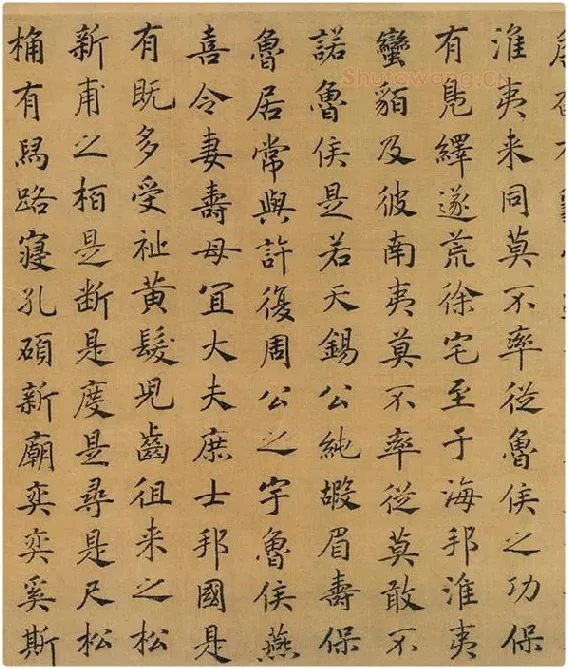 淮夷来同莫不率從魯侯之功保
有鳧繹遂荒徐宅至于海邦淮夷
蠻貊及彼南夷莫不率從莫敢不
諾魯侯是若天錫公純嘏眉壽保
魯居常與許復周公之宇魯侯燕
喜令妻壽母宜大夫庶士邦國是
有既多受祉黃髮兒齒徂来之松
新甫之栢是断是度是尋是尺松
桷有舄路寢孔碩新廟奕奕奚斯
Shufawang.CN